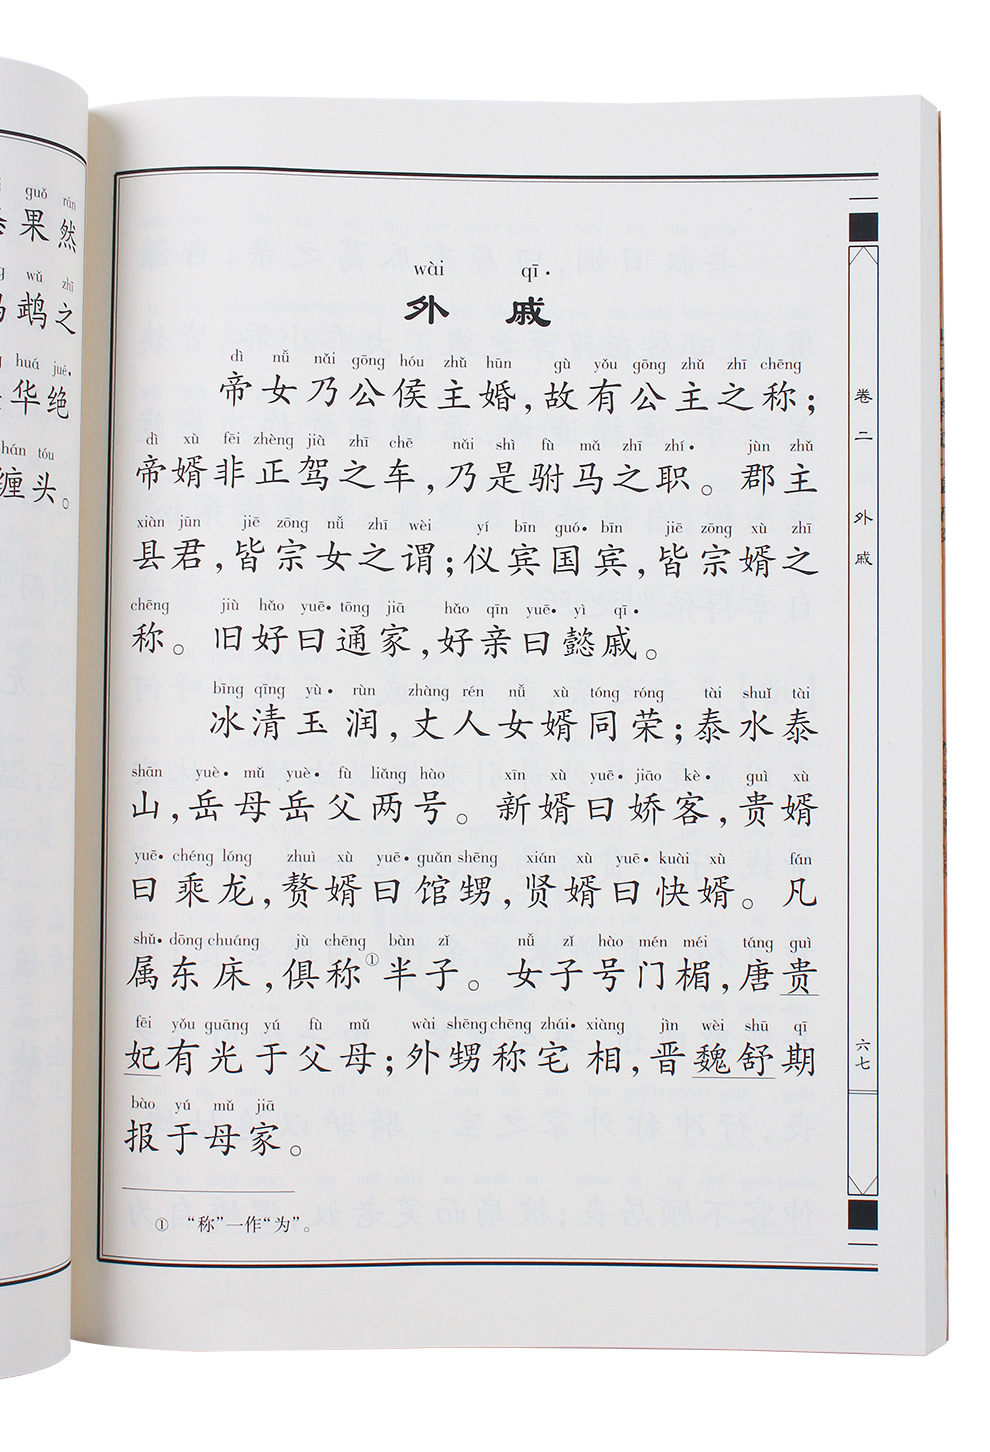 guǒ rán
果然
wǔ zhī
鹉之
huá jué·
华绝
tóu
缠头。
wài qī·
外戚
dì nǚ nǎi gōng hóu zhǔ hūn gù yǒu gōng zhǔ zhī chēng
帝女乃公侯主婚，故有公主之称；
dì xù fēi zhèng jià zhī chē nǎi shì fù mǎ zhī zhí· jùn zhǔ
帝婿非正驾之车，乃是驸马之职。郡主
xiàn jūn jiē zōng nǚ zhī wèi yí bīn guó· bīn jiē zōng xù zhī
县君，皆宗女之谓；仪宾国宾，皆宗婿之
chēng jiù hǎo yuē· tōng jiā hǎo qīn yuē· yì qī·
称。旧好曰通家，好亲曰懿戚。
bīng qīng yù· rùn zhàng rén nǚ xù tóng róng tài shuǐ tài
冰清玉润，丈人女婿同荣；泰水泰
shān yuè· mǔ yuè· fù liǎng hào xīn xù yuē· jiāo kè· guì xù
山，岳母岳父两号。新婿曰娇客，贵婿
yuē· chéng lóng zhuì xù yuē· guǎn shēng xián xù yuē· kuài xù fán
曰乘龙，赘婿曰馆甥，贤婿曰快婿。凡
shǔ· dōng chuáng jù chēng bàn zǐ nǚ zǐ hào mén méi táng guì
属东床，俱称①半子。女子号门楣，唐贵
fēi yǒu guāng yú fù mǔ wài shēng chēng zhái· xiàng jìn wèi shū qī
妃有光于父母；外甥称宅相，晋魏舒期
bào yú mǔ jiā
报于母家。
① “称”一作“为”。
卷二 外戚
六七